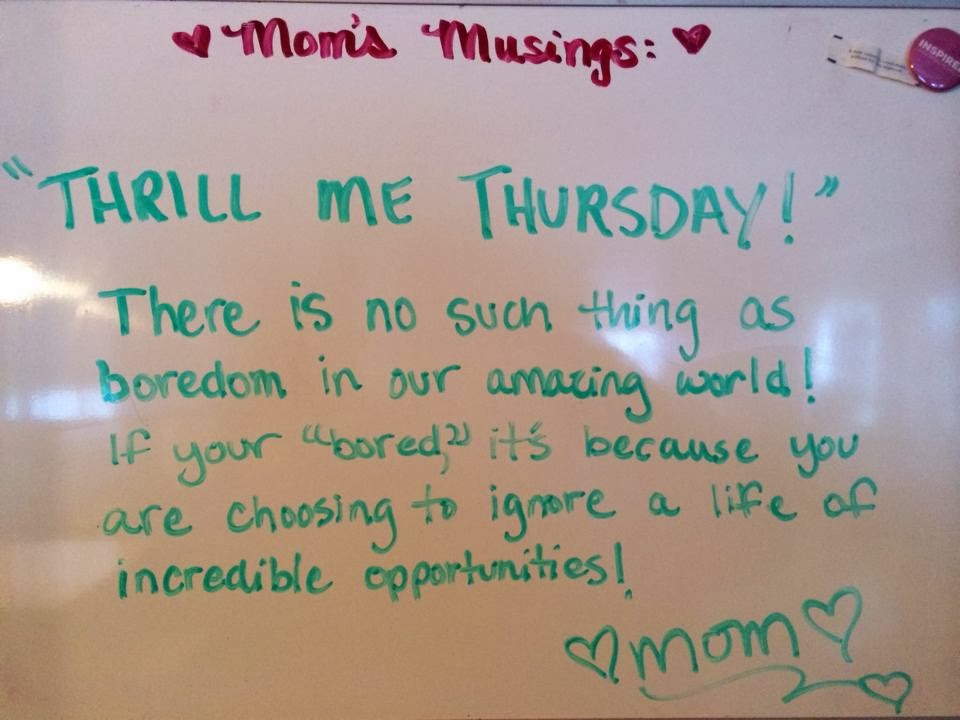 ♥ Mom's Musings: ♥
INSPIRE
"THRILL ME THURSDAY!"
There is no such thing as
boredom in our amazing world!
If your "bored," it's because you
are choosing to ignore a life of
incredible opportunities!
♡ mom ♡